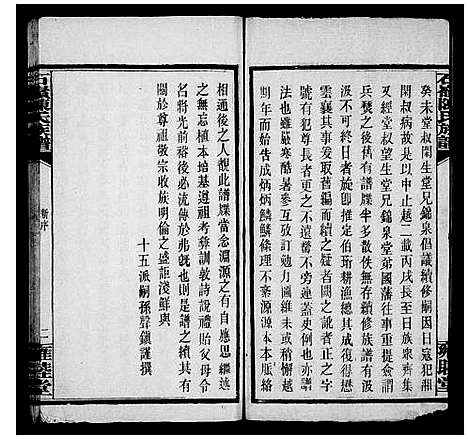 癸未堂叔閑生堂兄錦泉倡議續修嗣因日寇犯湘
閑叔病故是以中止越二載丙戌長至日族衆齊集
又經堂叔望生堂兄錦泉堂弟國藩往事重申僉謂
兵燹之後舊有譜牒半多散佚無存續修一役誠急
汲不可終日者旋即推定伯珩耕漁總其成以堯
雲襄其事共发取舊編而續之疑者闕之訛者正之字
號有犯尊長者更之不遺奮不旁連蓋史例也亦宗
也雖嚴寒酷暑參互攷訂勉力圖維未或稍懈越
十告成炳炳麟麟條理不紊源源本本
相通後之人覩此譜牒當念淵源之有自應思繼述
之無忘植本培基遵祖考彝訓敦詩說禮貽父母令
名將光前裕後必流傳於弗旣也則是譜之續其有
關於尊祖敬宗收族明倫之盛詎淺鮮與
十五派嗣孫聲鎮謹撰
石嶺陳氏族譜
新序
二
雍睦堂